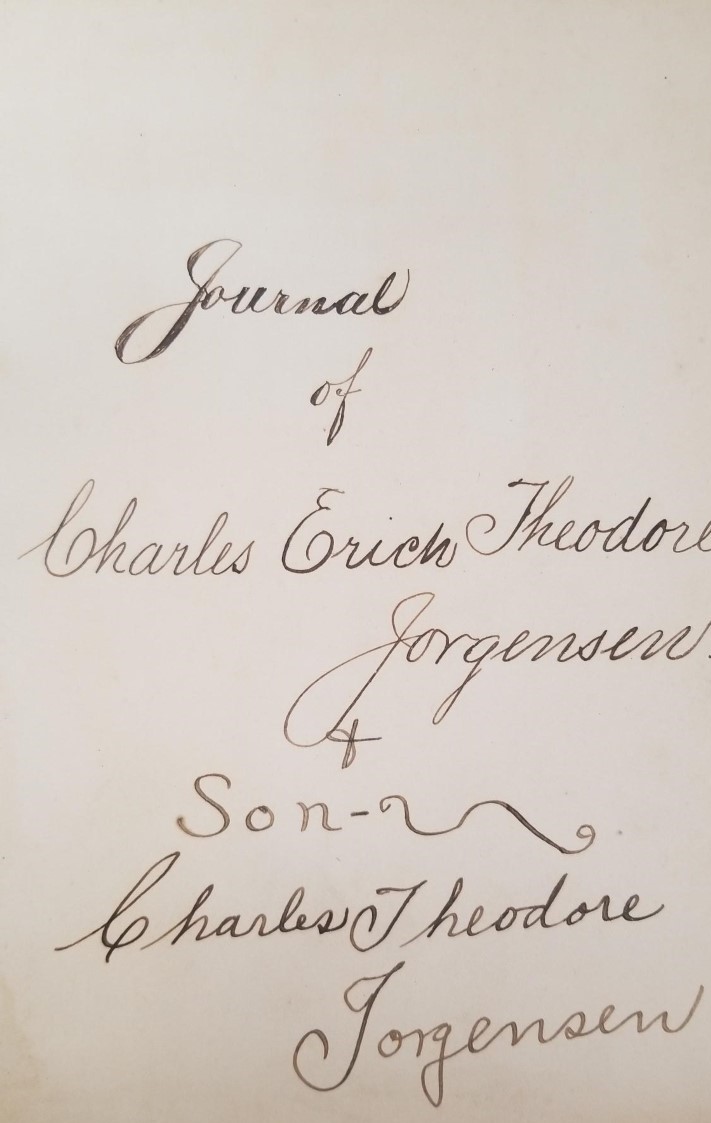 Journal
of
Charles Erich Theodore
Jorgensen.
&
Son-
Charles Theodore
Jorgensen